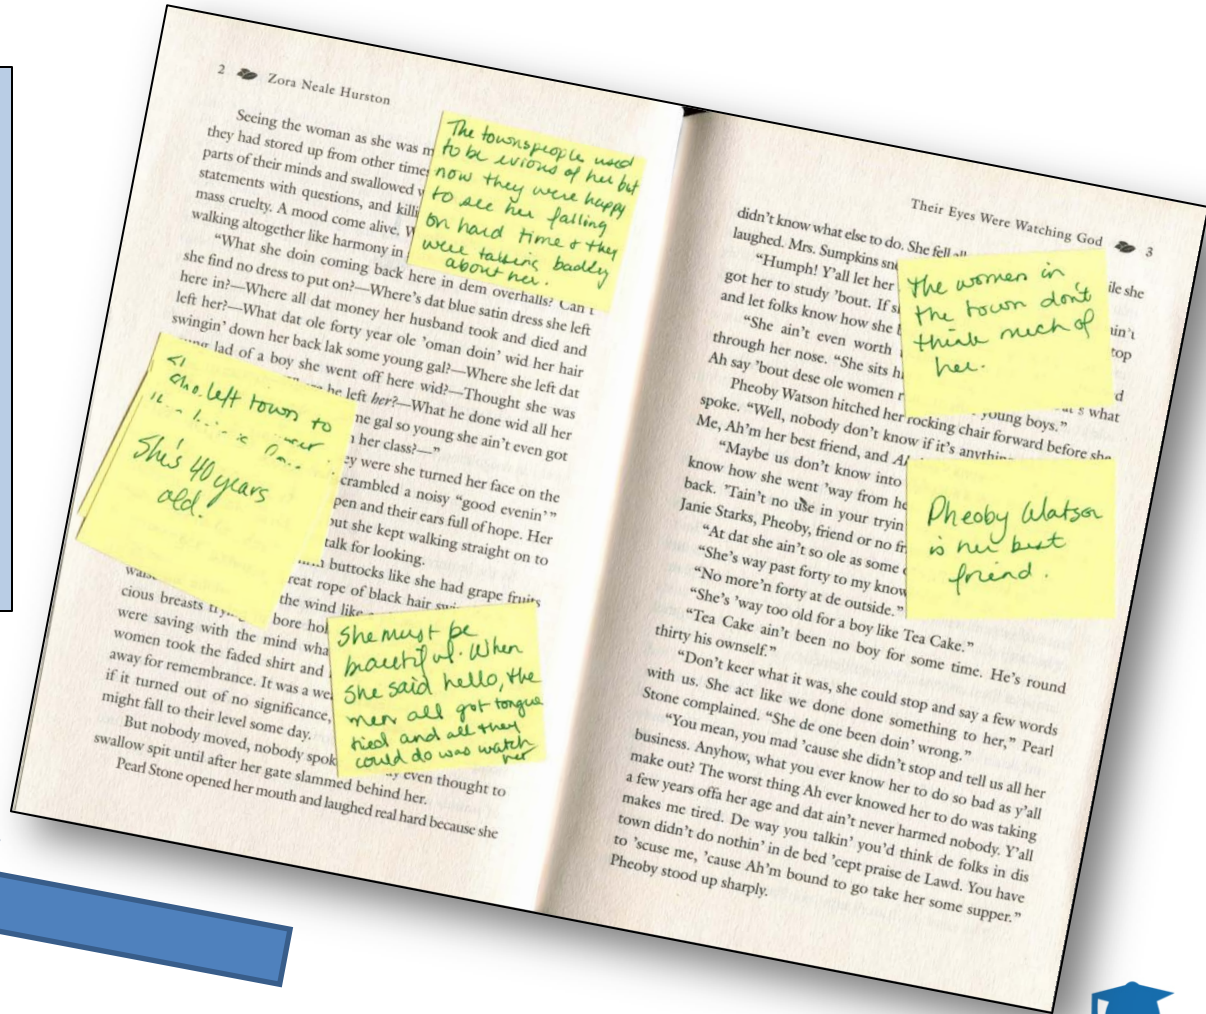 2 Zora Neale Hurston
Seeing the woman as she was
they had stored up from other
parts of their minds and swallowed
statements with questions, and
mass cruelty. A mood come alive.
walking altogether like harmony in
"What she doin coming back here in dem overhalls? Can't
she find no dress to put on?—Where's dat blue satin dress she left
here in?—Where all dat money her husband took and died and
left her?—What dat ole forty year ole 'oman doin' wid her hair
swingin' down her back lak some young gal?—Where she left dat
lad of a boy she went off here wid?—Thought she was
he left her?—What he done wid all her
gal so young she ain't even got
her class?—"
were she turned her face on the
scrambled a noisy "good evenin'"
and their ears full of hope. Her
but she kept walking straight on to
talk for looking.
buttocks like she had grape fruits
rope of black hair
the wind like
cious breasts bore
were saving with the mind
women took the faded shirt and
away for remembrance. It was a
if it turned out of no significance,
might fall to their level some day.
But nobody moved, nobody even thought to
swallow spit until after her gate slammed behind her.
Pearl Stone opened her mouth and laughed real hard because she
The townspeople used
to be evious of her but
now they were happy
to see her falling
on hard time & they
were talking badly
about her.
She left town to
She's 40 years
old.
She must be
beautiful. When
she said hello, the
men all got tongue
tied and all they
could do was watch
her
Their Eyes Were Watching God 3
didn't know what else to do. She fell
laughed. Mrs. Sumpkins she
"Humph! Y'all let her
got her to study 'bout. If
and let folks know how she
"She ain't even worth
through her nose. "She sits
Ah say 'bout dese ole women what
young boys."
Pheoby Watson hitched her rocking chair forward before she
spoke. "Well, nobody don't know if it's
Me, Ah'm her best friend, and
"Maybe us don't know into
know how she went 'way from
back. 'Tain't no use in your
Janie Starks, Pheoby, friend or no
"At dat she ain't so ole as some
"She's way past forty to my
"No more'n forty at de outside."
"She's 'way too old for a boy like Tea Cake."
"Tea Cake ain't been no boy for some time. He's round
thirty his ownself."
"Don't keer what it was, she could stop and say a few words
with us. She act like we done done something to her," Pearl
Stone complained. "She de one been doin' wrong."
"You mean, you mad 'cause she didn't stop and tell us all her
business. Anyhow, what you ever know her to do so bad as y'all
make out? The worst thing Ah ever knowed her to do was taking
a few years offa her age and dat ain't never harmed nobody. Y'all
makes me tired. De way you talkin' you'd think de folks in dis
town didn't do nothin' in de bed 'cept praise de Lawd. You have
to 'scuse me, 'cause Ah'm bound to go take her some supper."
Pheoby stood up sharply.
the women in
the town don't
think much of
her.
Pheoby Watson
is her best
friend.